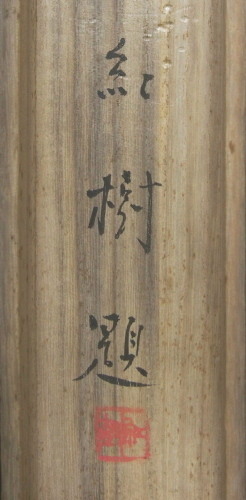 紅樹題